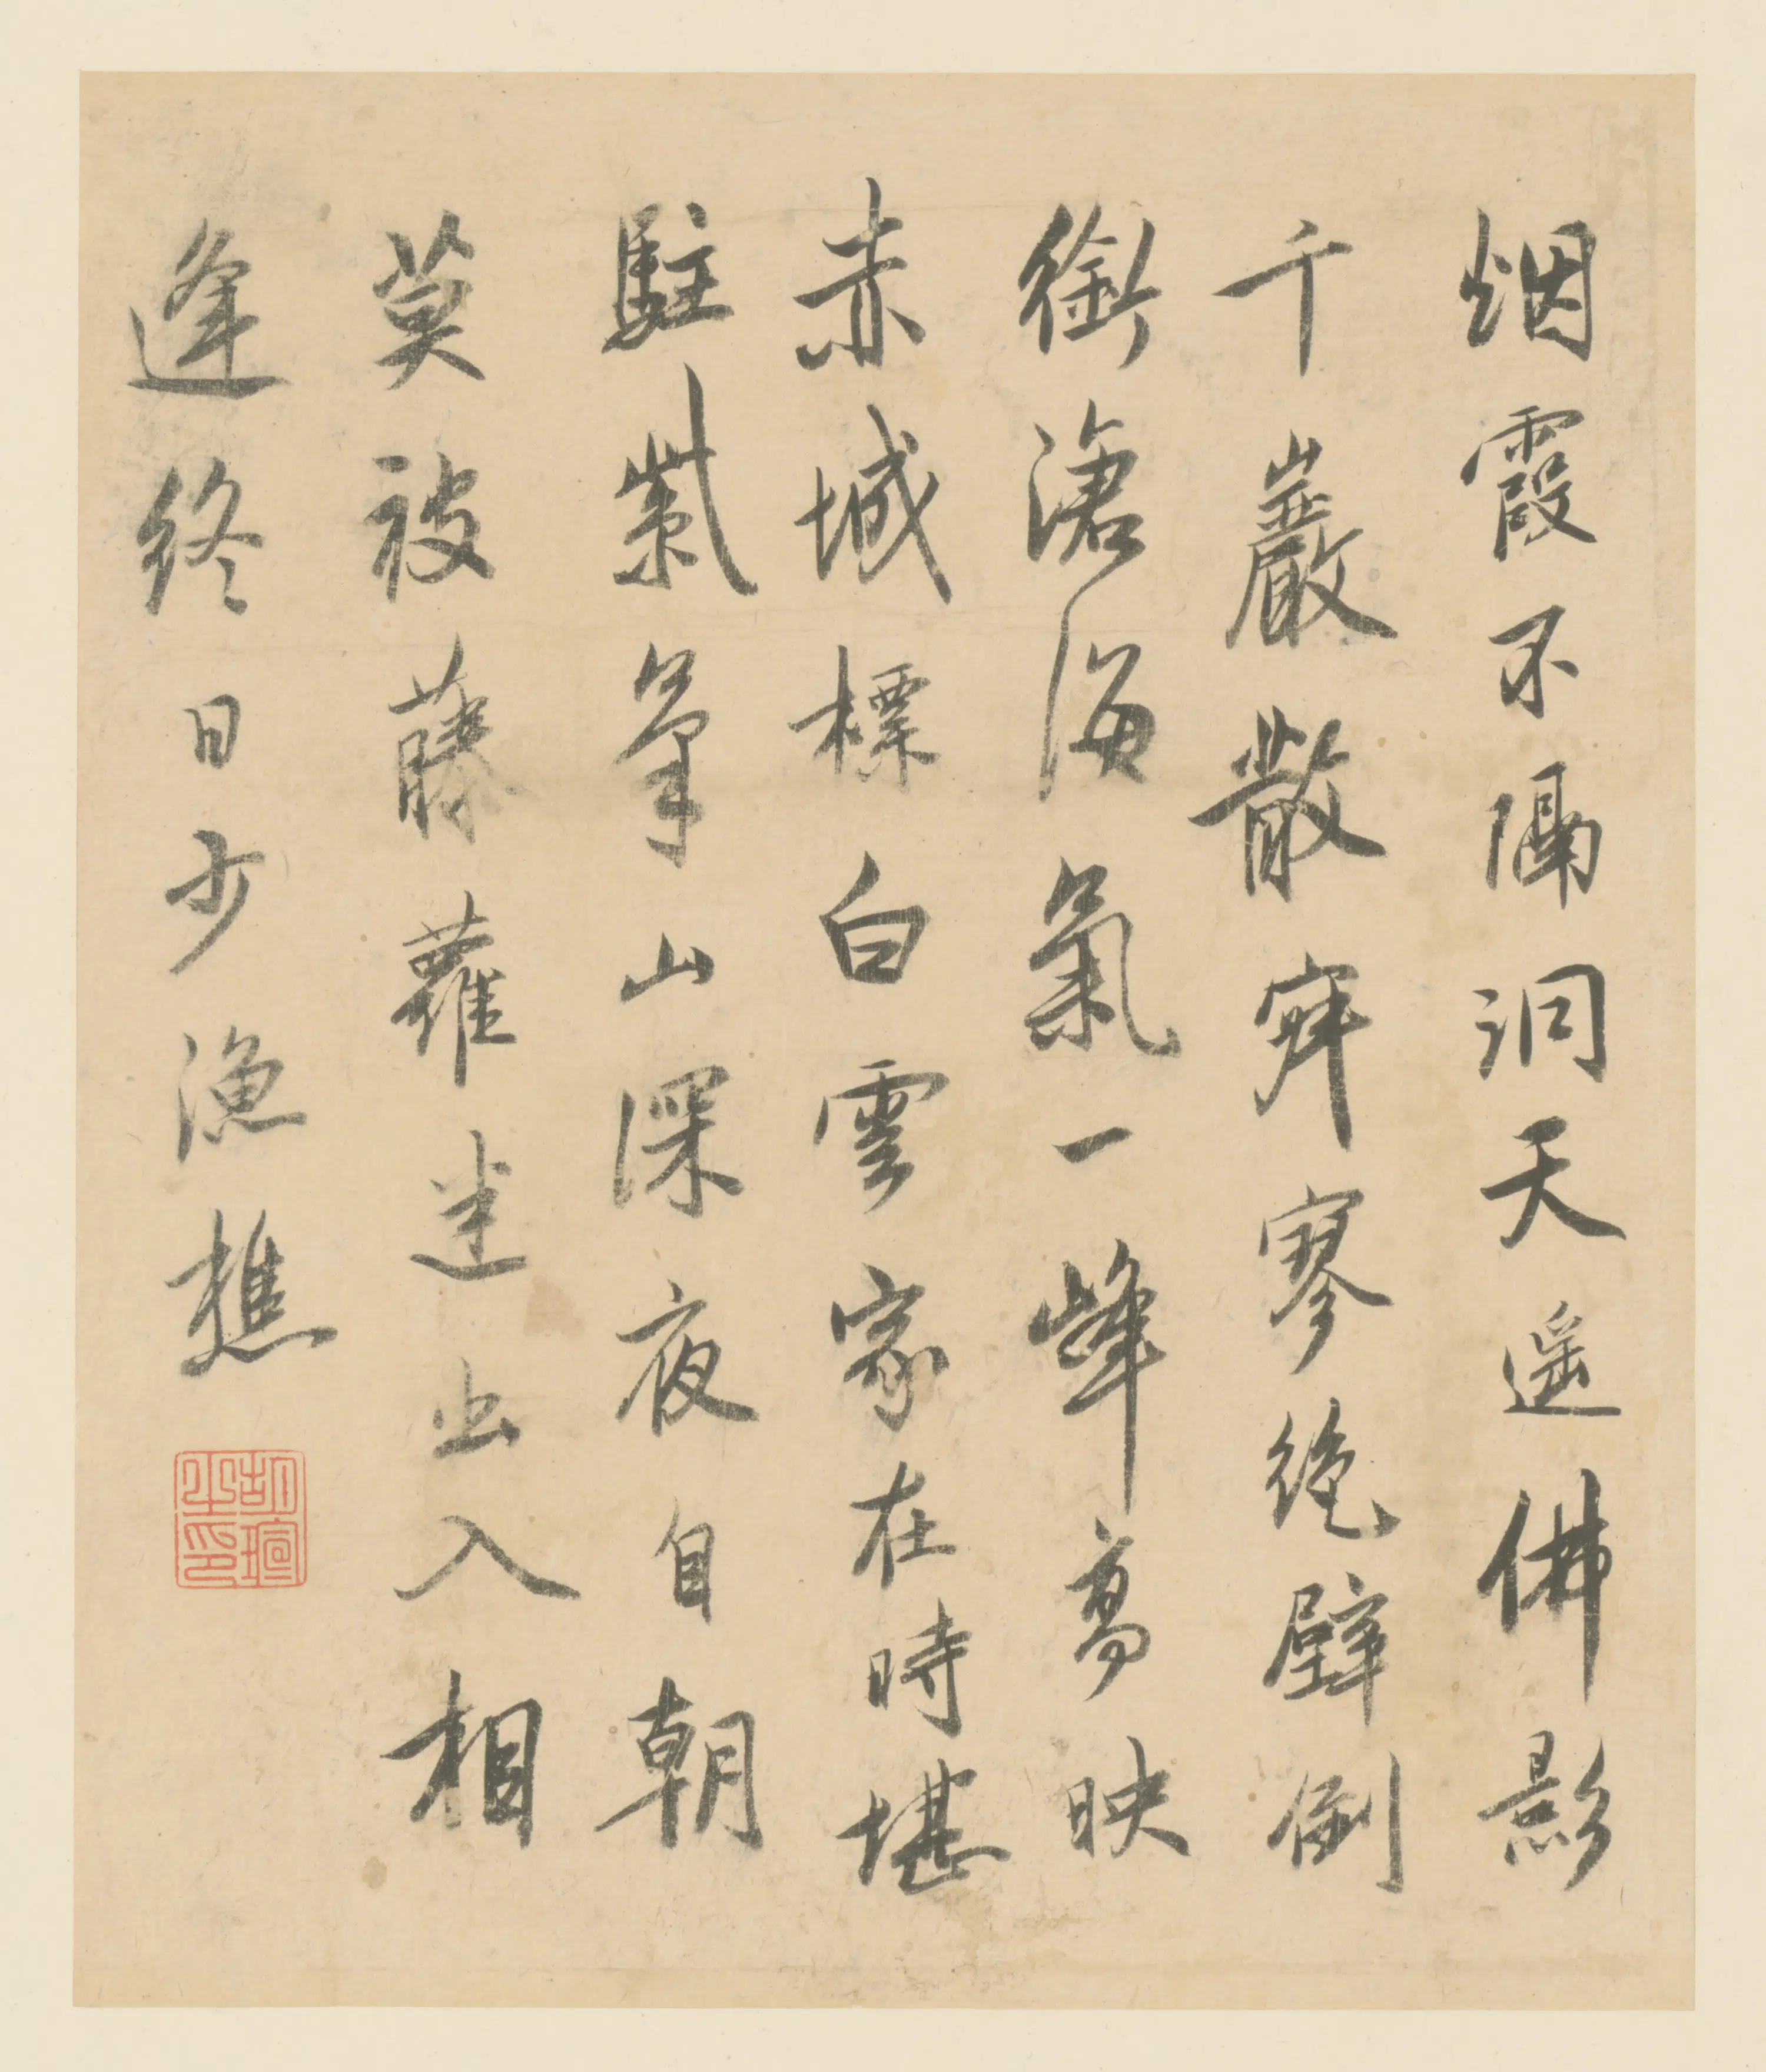 烟霞不隔洞天遥佛影
千巖散寂寥絶壁倒
銜滄海氣一峰高映
赤城標白雲家在時堪
駐紫山深夜自朝
莫被藤蘿迷出入相
逢終日少漁樵
胡瑄之印